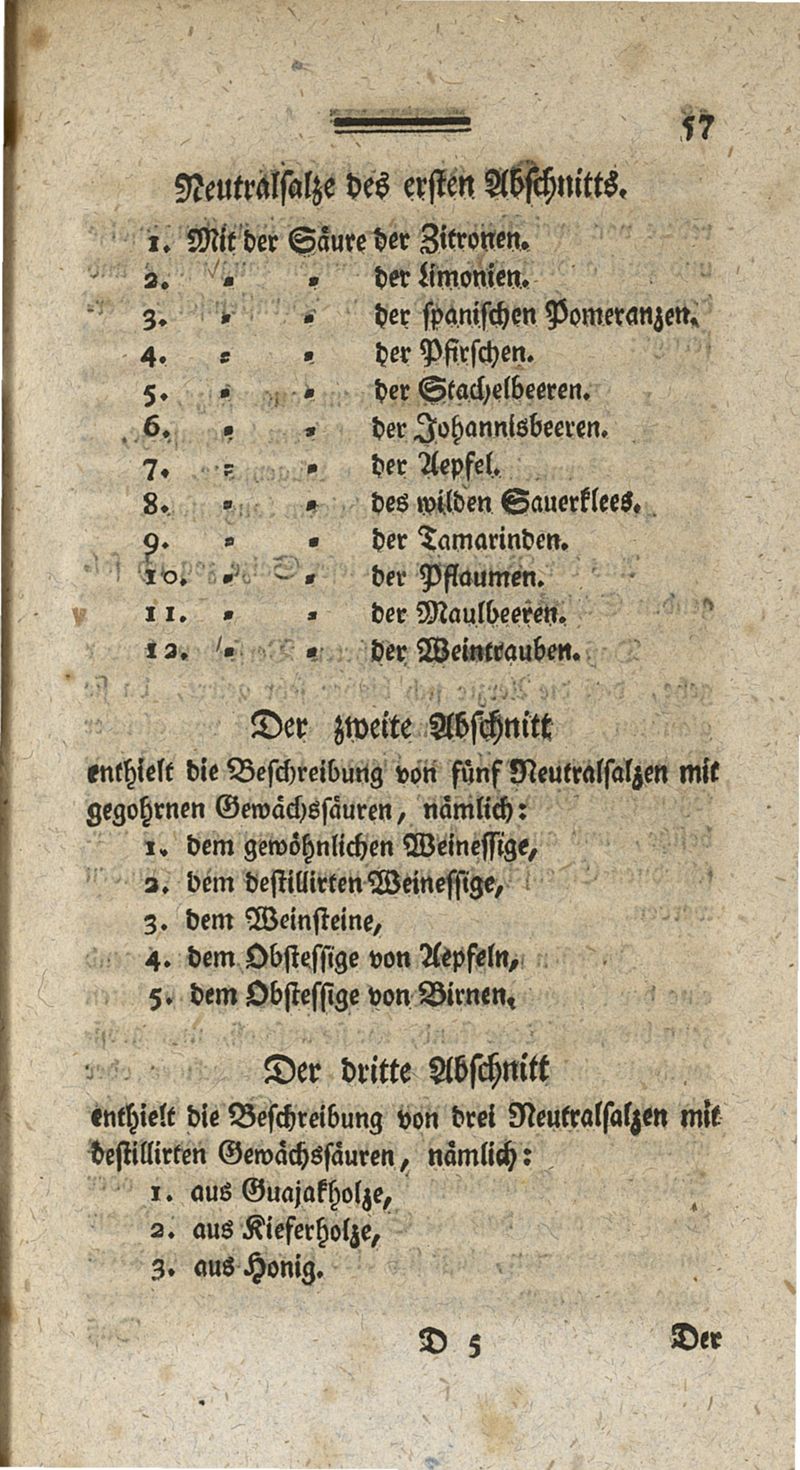 57
Neutralsalze des ersten Abschnitts.
1. Mit der Säure der Zitronen.
2. = = der Limonien.
3. = = der spanischen Pomeranzen.
4. = = der Pfirschen.
5. = = der Stachelbeeren.
6. = = der Johannisbeeren.
7. = = der Aepfel.
8. = = des wilden Sauerklees.
9. = = der Tamarinden.
10. = = der Pflaumen.
11. = = der Maulbeeren.
12. = = der Weintrauben.
Der zweite Abschnitt
enthielt die Beschreibung von fünf Neutralsalzen mit
gegohrnen Gewächssäuren, nämlich:
1. dem gewöhnlichen Weinessige,
2. dem destillirten Weinessige,
3. dem Weinsteine,
4. dem Obstessige von Aepfeln,
5. dem Obstessige von Birnen.
Der dritte Abschnitt
enthielt die Beschreibung von drei Neutralsalzen mit
destillirten Gewächssäuren, nämlich:
1. aus Guajakholze,
2. aus Kieferholze,
3. aus Honig.
D 5 Der